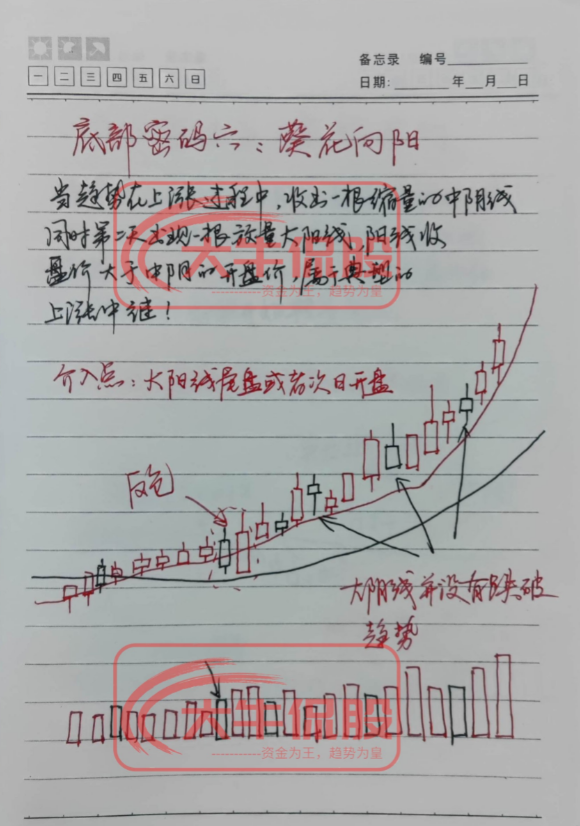 备忘录 编号
一 二 三 四 五 六 日
日期: 年 月 日
底部密码六:葵花向阳
当趋势在上涨过程中,收出一根缩量的中阴线
同时第二天出现一根放量大阳线,阳线收
盘价大于中阴的开盘价,属于典型的
上涨中继!
大牛侃股
-----------资金为王,趋势为皇
介入点:大阳线尾盘或者次日开盘
反包
大阴线并没有跌破
趋势
大牛侃股
-----------资金为王,趋势为皇